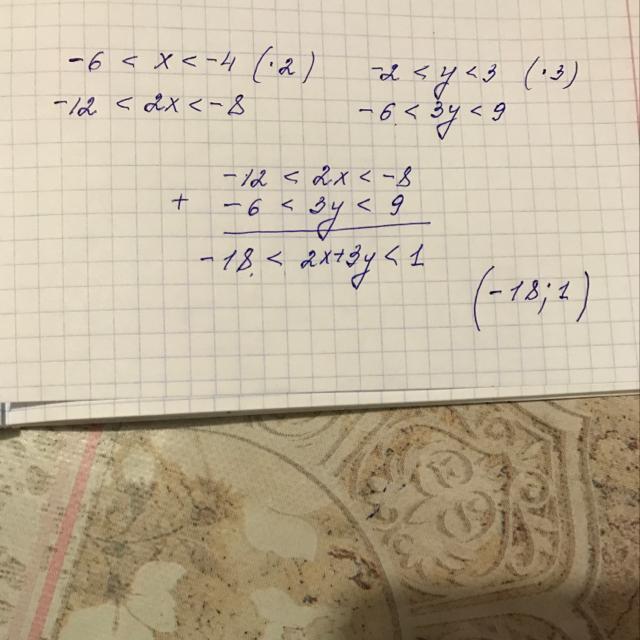 -6 < x < -4 (·2)
-12 < 2x < -8
-2 < y < 3 (·3)
-6 < 3y < 9
-12 < 2x < -8
+ -6 < 3y < 9
-18 < 2x+3y < 1
(-18; 1)